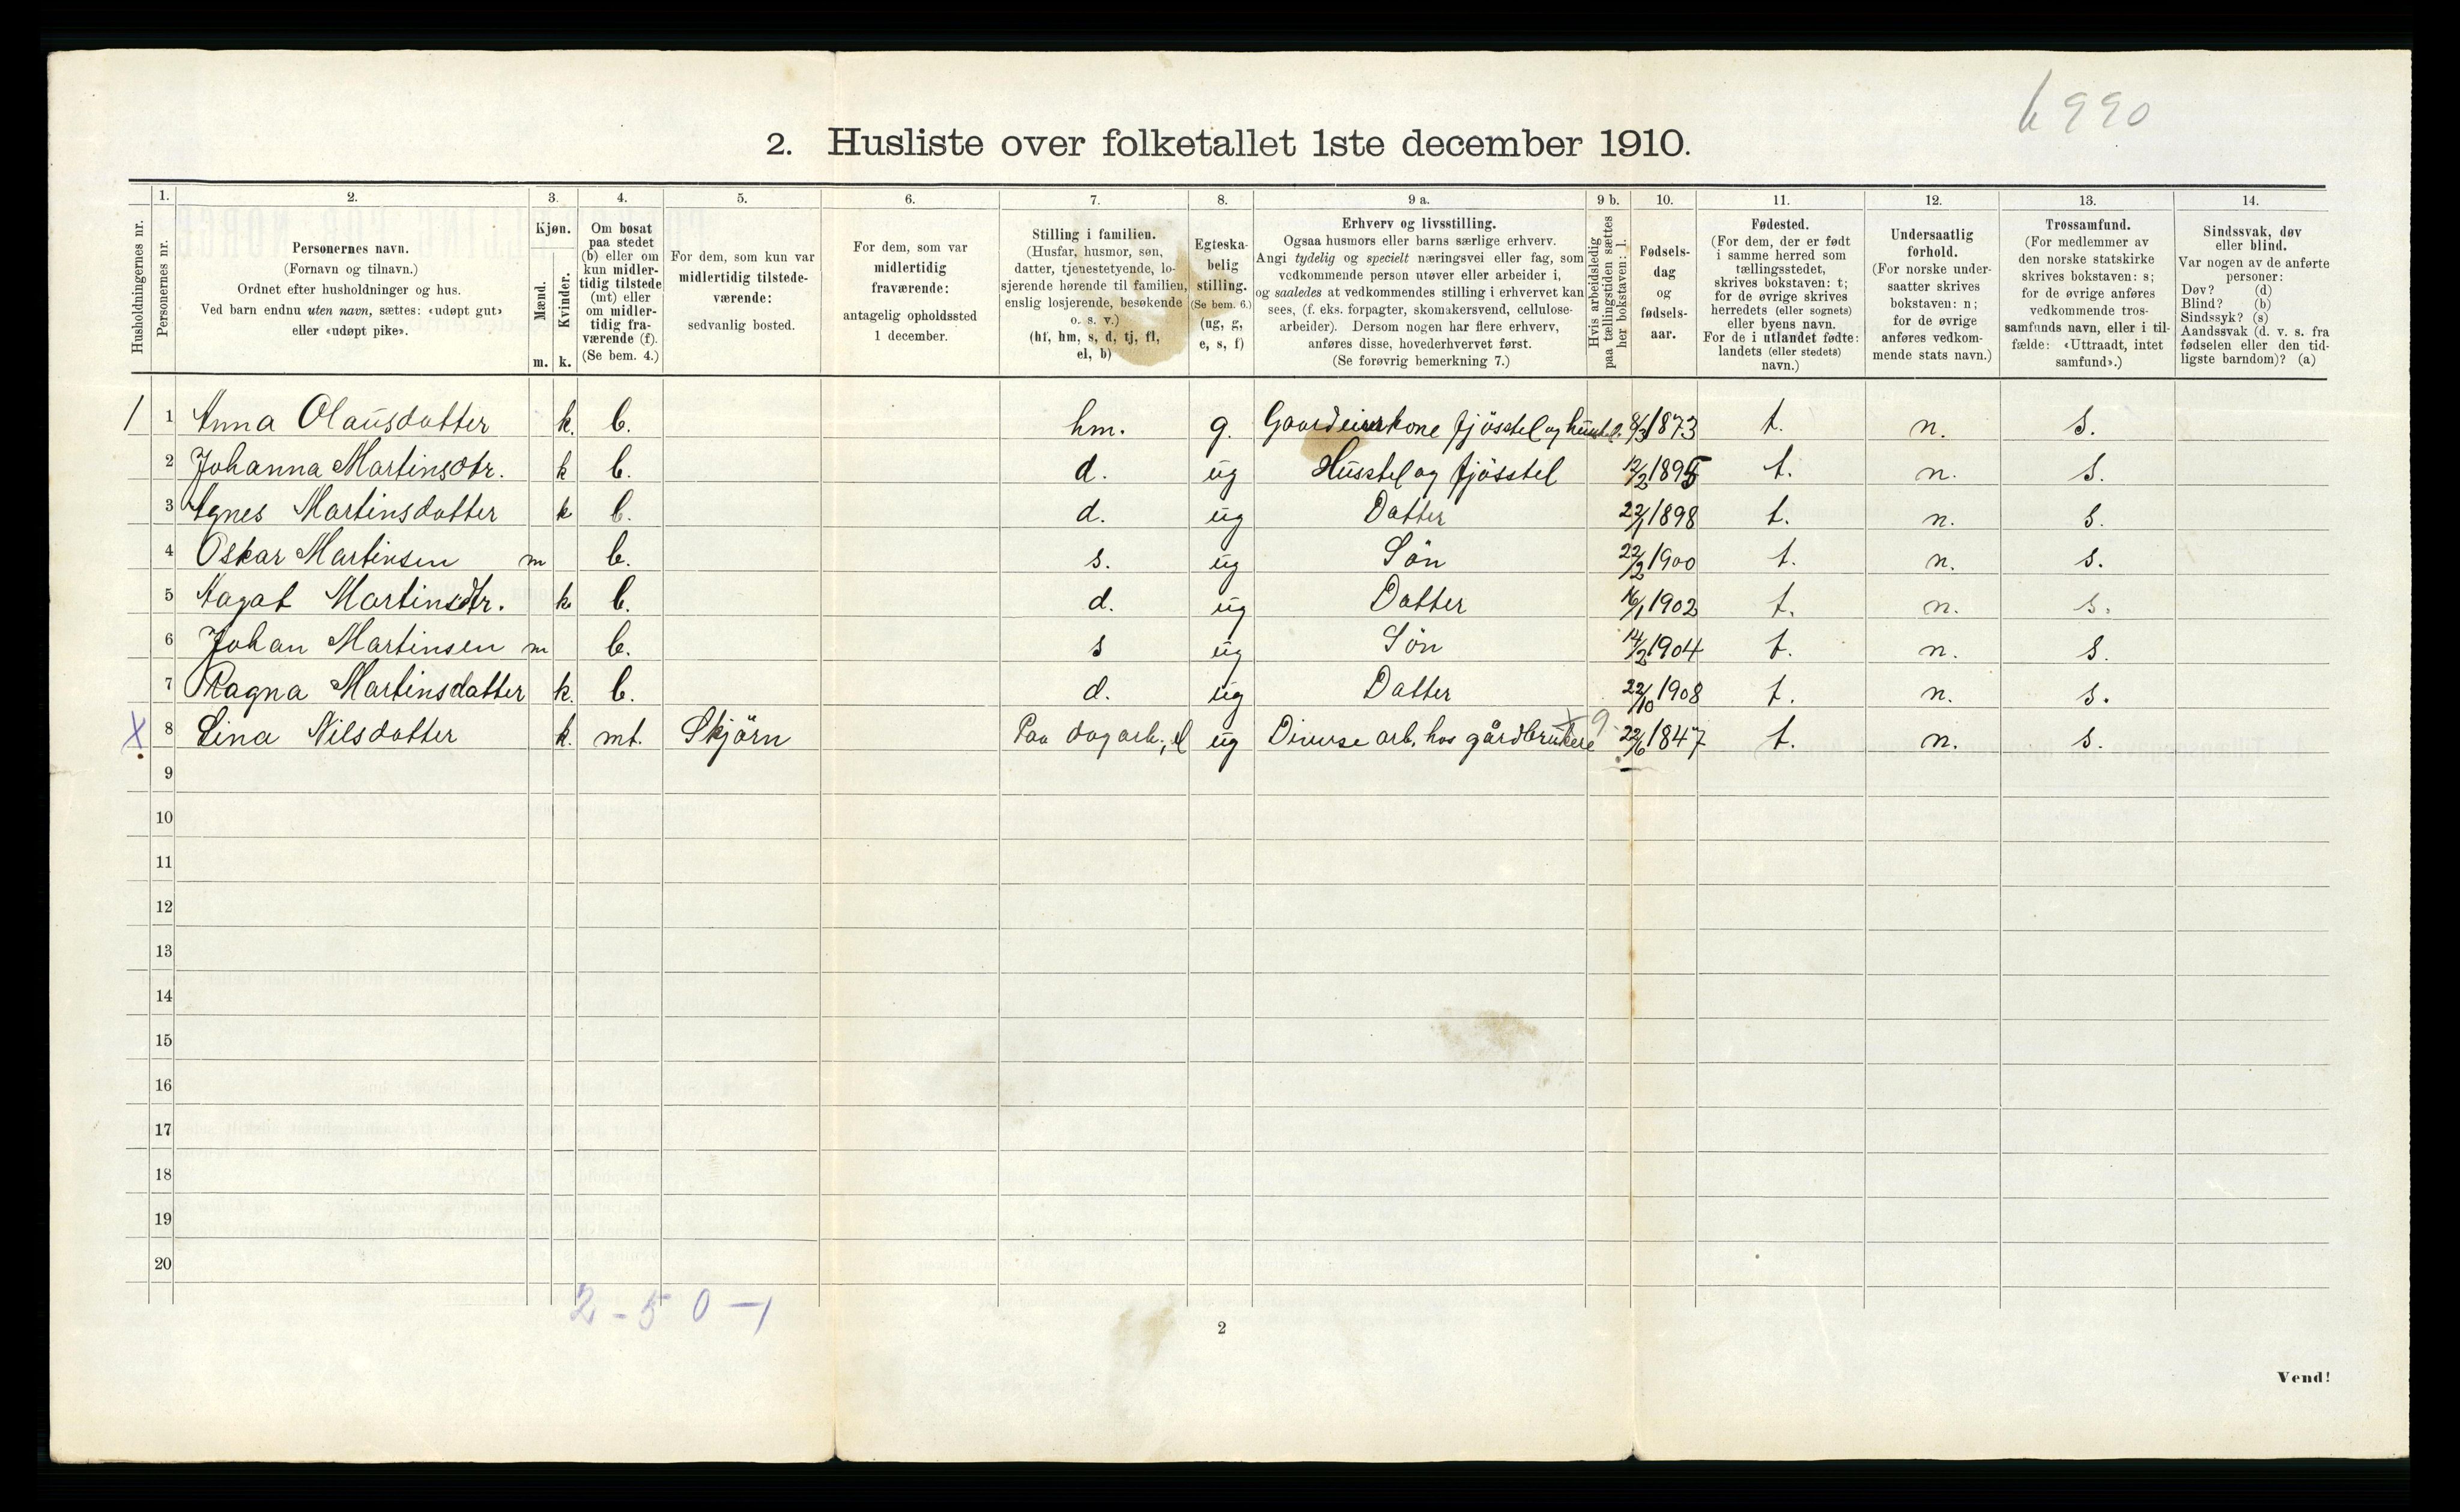 6990
2. Husliste over folketallet 1ste december 1910.
Husholdningernes nr.
1. Personernes nr.
2. Personernes navn.
(Fornavn og tilnavn.)
Ordnet efter husholdninger og hus.
Ved barn endnu uten navn, sættes: «udøpt gut»
eller «udøpt pike».
3. Kjøn.
Mænd. m.
Kvinder. k.
4. Om bosat
paa stedet
(b) eller om
kun midler-
tidig tilstede
(mt) eller
om midler-
tidig fra-
værende (f).
(Se bem. 4.)
5. For dem, som kun var
midlertidig tilstede-
værende:
sedvanlig bosted.
6. For dem, som var
midlertidig
fraværende:
antagelig opholdssted
1 december.
7. Stilling i familien.
(Husfar, husmor, søn,
datter, tjenestetyende, lo-
sjerende hørende til familien,
enslig losjerende, besøkende
o. s. v.)
(hf, hm, s, d, tj, fl,
el, b)
8. Egteska-
belig
stilling.
(Se bem. 6.)
(ug, g,
e, s, f)
9 a. Erhverv og livsstilling.
Ogsaa husmors eller barns særlige erhverv.
Angi tydelig og specielt næringsvei eller fag, som
vedkommende person utøver eller arbeider i,
og saaledes at vedkommendes stilling i erhvervet kan
sees, (f. eks. forpagter, skomakersvend, cellulose-
arbeider). Dersom nogen har flere erhverv,
anføres disse, hovederhvervet først.
(Se forøvrig bemerkning 7.)
9 b. Hvis arbeidsledig
paa tællingstiden sættes
her bokstaven: l.
10. Fødsels-
dag
og
fødsels-
aar.
11. Fødested.
(For dem, der er født
i samme herred som
tællingsstedet,
skrives bokstaven: t;
for de øvrige skrives
herredets (eller sognets)
eller byens navn.
For de i utlandet fødte:
landets (eller stedets)
navn.)
12. Undersaatlig
forhold.
(For norske under-
saatter skrives
bokstaven: n;
for de øvrige
anføres vedkom-
mende stats navn.)
13. Trossamfund.
(For medlemmer av
den norske statskirke
skrives bokstaven: s;
for de øvrige anføres
vedkommende tros-
samfunds navn, eller i til-
fælde: «Uttraadt, intet
samfund».)
14. Sindssvak, døv
eller blind.
Var nogen av de anførte
personer:
Døv? (d)
Blind? (b)
Sindssyk? (s)
Aandssvak (d. v. s. fra
fødselen eller den tid-
ligste barndom)? (a)
1 1 Anna Olausdatter k. b. hm. g. Gaardeierkone fjösstel og 8/3 1873 t. n. s.
2 Johanna Martinsdtr. k b. d. ug Husstel og fjösstel 12/2 1895 t. n. s.
3 Agnes Martinsdatter k b. d. ug Datter 22/1 1898 t. n. s.
4 Oskar Martinsen m b. s. ug Sön 22/2 1900 t. n. s.
5 Aagat Martinsdtr. k b. d. ug Datter 16/1 1902 t. n. s.
6 Johan Martinsen m b. s ug Sön 14/2 1904 t. n. s.
7 Ragna Martinsdatter k. b. d. ug Datter 22/10 1908 t. n. s.
X 8 Lina Nilsdatter k. mt. Skjörn Paa dagarb., el ug Diverse arb. hos gårdbrukere 22/6 1847 t. n. s.
9
10
11
12
13
14
15
16
17
18
19
20
2 - 5 0 - 1
2
Vend!